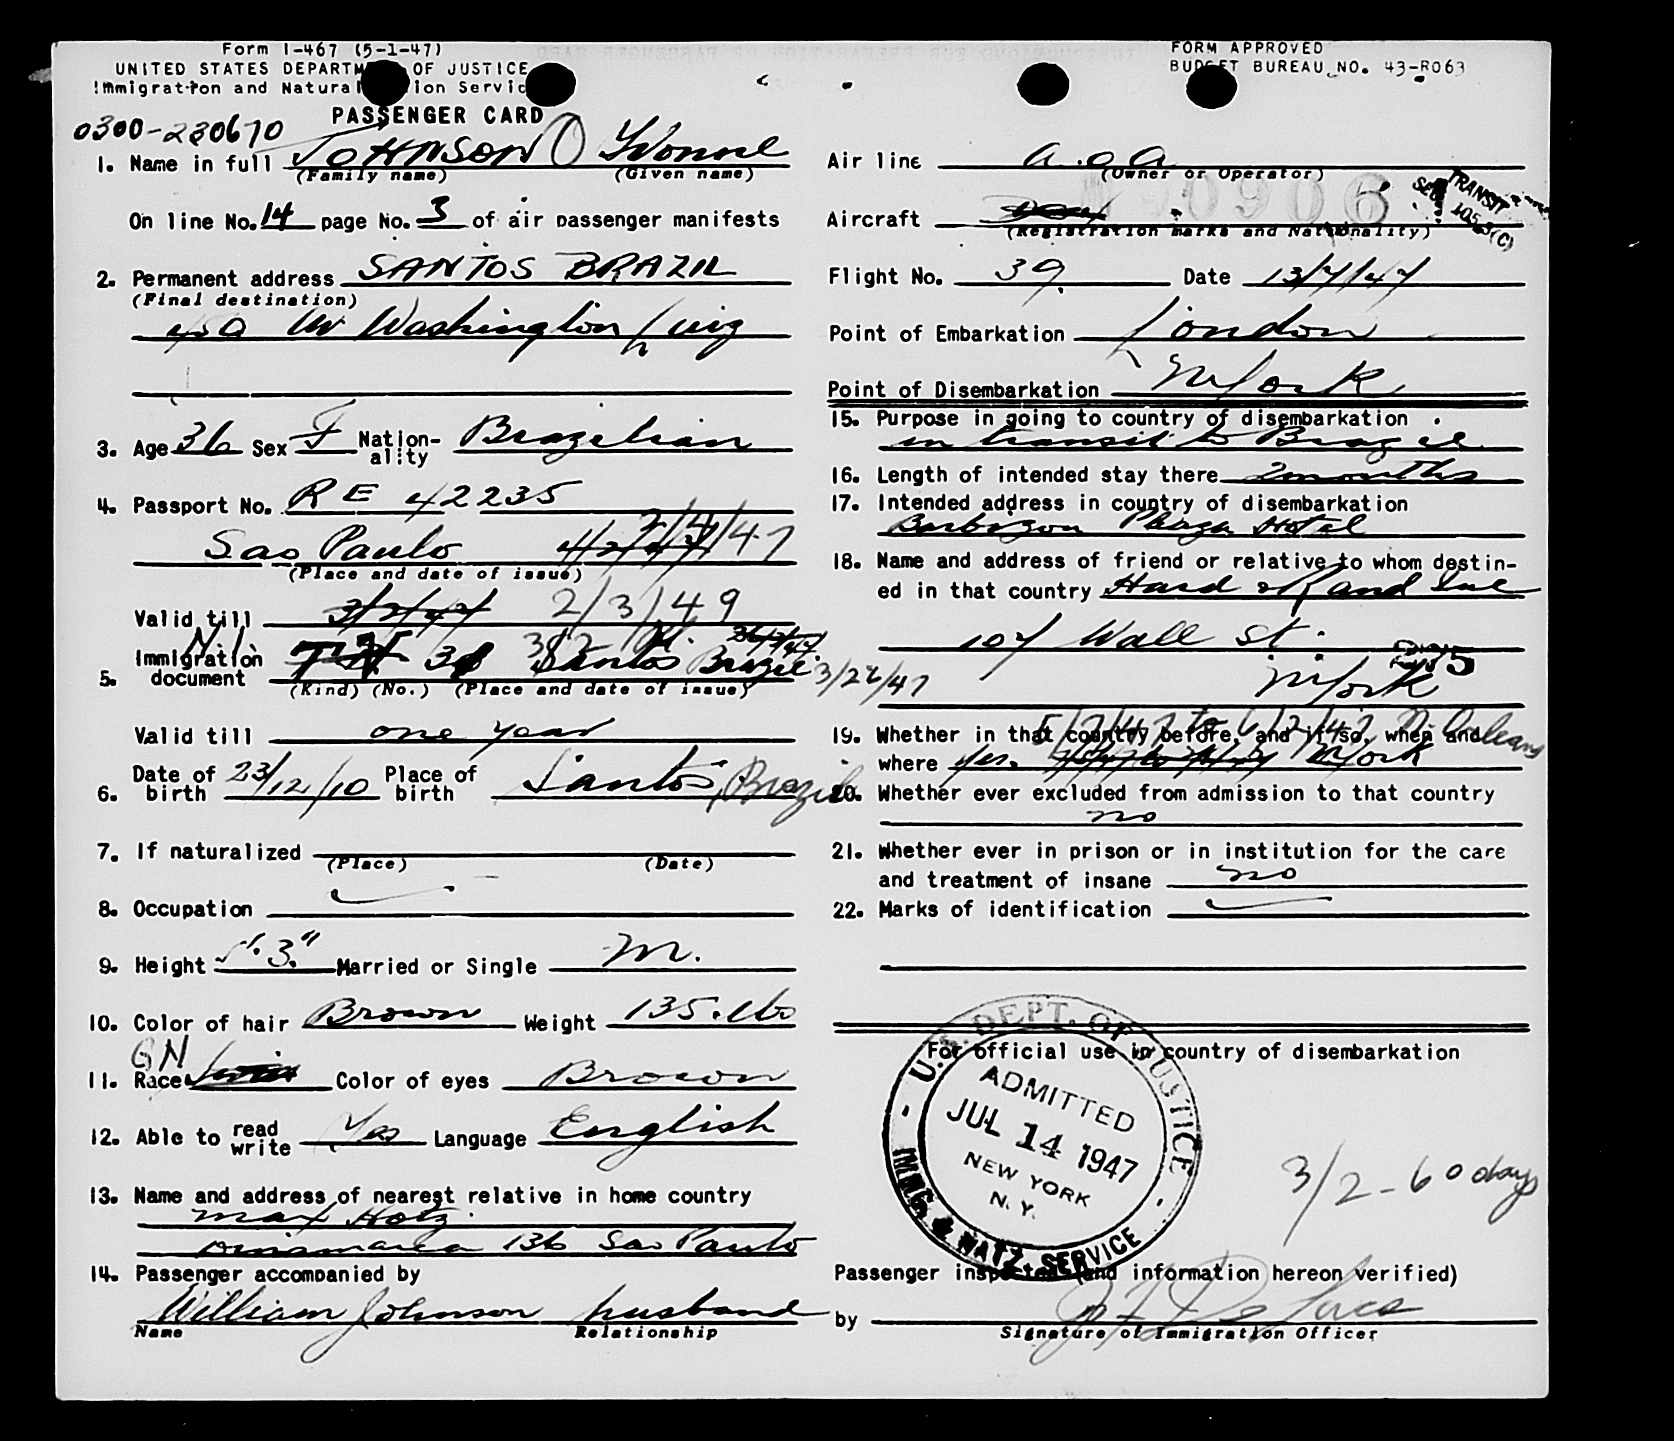 Form I-467 (5-1-47)
UNITED STATES DEPARTM OF JUSTICE
Immigration and Natural ion Servic
PASSENGER CARD
0300-230670
1. Name in full JOHNSON Yvonne
(Family name) (Given name)
On line No. 14 page No. 3 of air passenger manifests
2. Permanent address SANTOS BRAZIL
(Final destination)
450 W Washington
3. Age 36 Sex F Nation-ality Brazilian
4. Passport No. RE 42235
Sao Paulo 2/4/47
(Place and date of issue)
Valid till 2/3/49
5. Immigration document 312 Santos Brazil 3/26/47
(Kind) (No.) (Place and date of issue)
Valid till one year
6. Date of birth 23/12/10 Place of birth Santos, Brazil
7. If naturalized
(Place) (Date)
8. Occupation
9. Height 5'.3" Married or Single M.
10. Color of hair Brown Weight 135. lbs
GN
11. Race Color of eyes Brown
12. Able to read write Yes Language English
13. Name and address of nearest relative in home country
Max Hotz
Dinamarca 136 Sao Paulo
14. Passenger accompanied by
William Johnson husband
Name Relationship
FORM APPROVED
BUDGET BUREAU NO. 43-R063
Air line a.o.a
(Owner or Operator)
0906
TRANSIT
SEC. 105.3(C)
Aircraft
(Registration marks and Nationality)
Flight No. 39 Date 13/7/47
Point of Embarkation London
Point of Disembarkation N York
15. Purpose in going to country of disembarkation
in transit to Brazil
16. Length of intended stay there 2 months
17. Intended address in country of disembarkation
Barbizon Plaza Hotel
18. Name and address of friend or relative to whom destin-
ed in that country Hard & Rand Inc
107 Wall St.
N York
19. Whether in that country before, and if so, when and
5/2/47 to 6/2/47 N. Orleans
where yes. N York
20. Whether ever excluded from admission to that country
no
21. Whether ever in prison or in institution for the care
and treatment of insane no
22. Marks of identification
For official use in country of disembarkation
U.S. DEPT. OF JUSTICE
ADMITTED
JUL 14 1947
NEW YORK
N.Y.
IMMG. & NATZ. SERVICE
3/2 - 60 days
Passenger inspected (and information hereon verified)
by De Luca
Signature of Immigration Officer